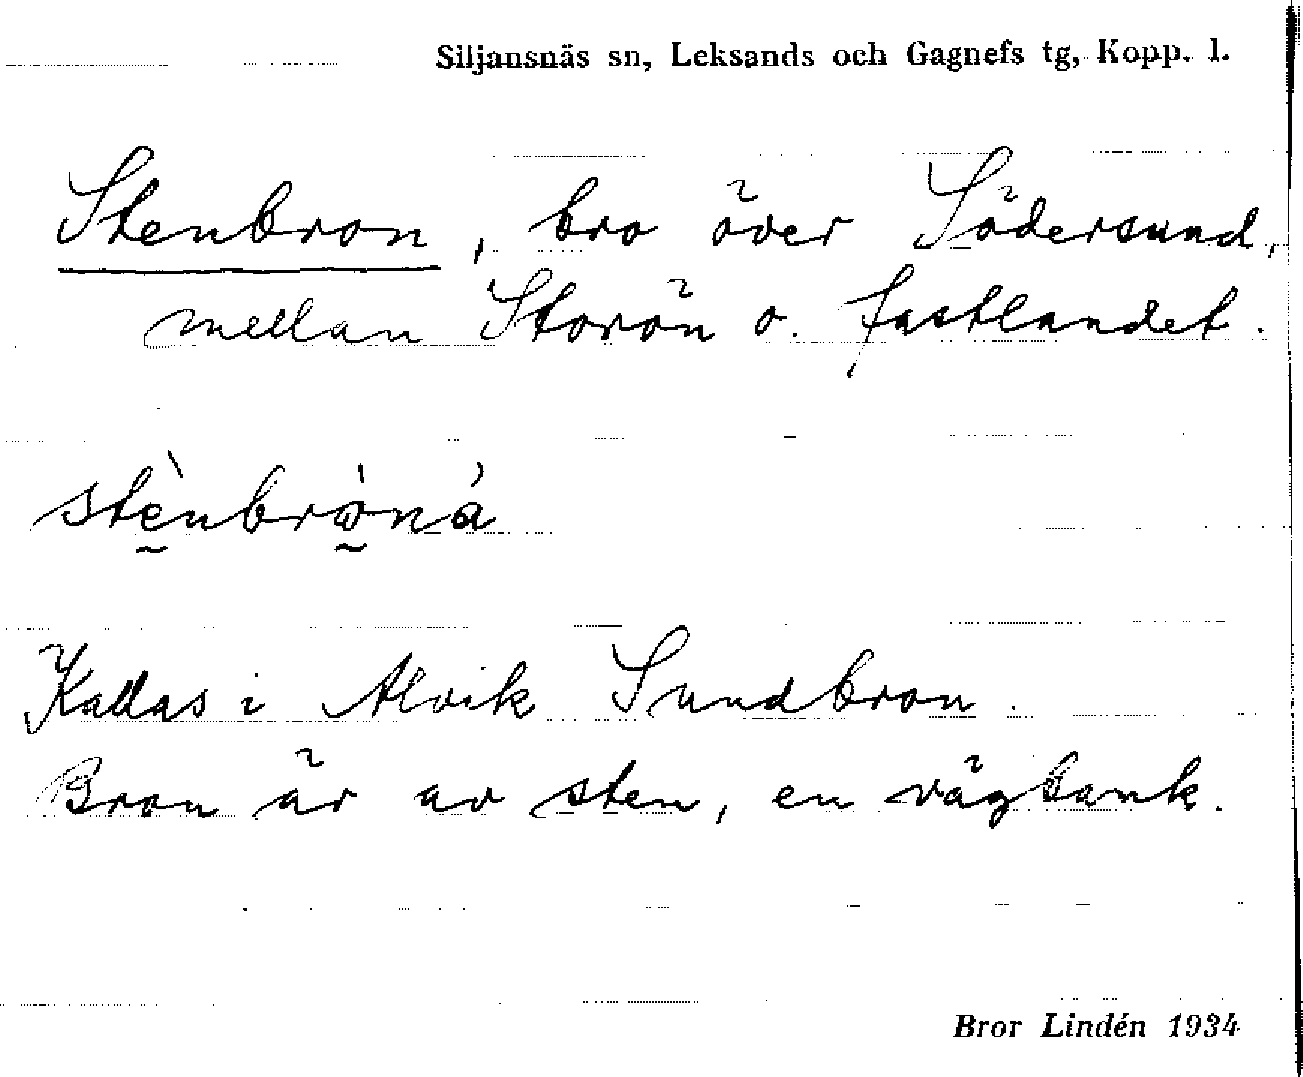 Siljansnäs sn, Leksands och Gagnefs tg, Kopp. l.
Stenbron, bro över Södersund,
mellan Storön o. fastlandet.
stènbròná
Kallas i Alvik Sundbron.
Bron är av sten, en vägbank.
Bror Lindén 1934